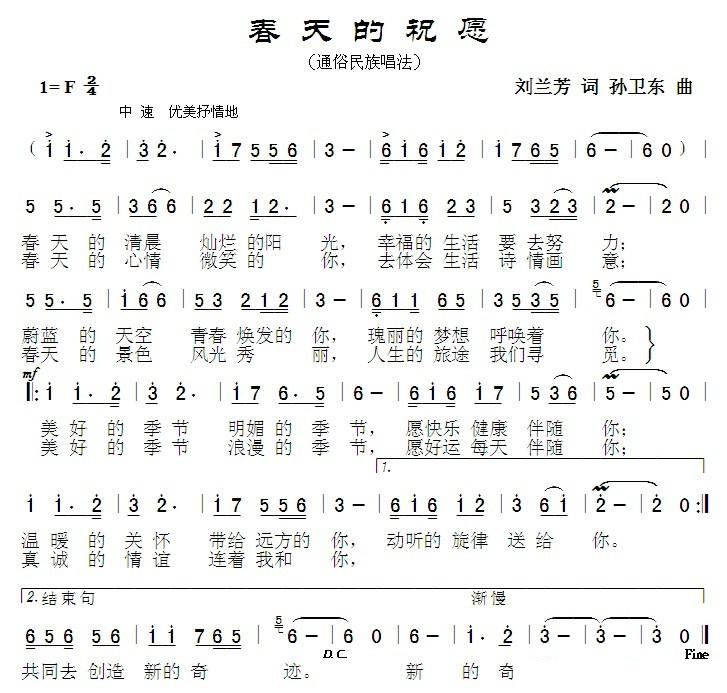 春天的祝愿
（通俗民族唱法）
1= F 2/4 刘兰芳 词 孙卫东 曲
中 速 优美抒情地
（ i i· 2 | 3 2· | i 7 5 5 6 | 3 – | 6 i 6 i 2 | i 7 6 5 | 6 – | 6 0 ） |
5 5· 5 | 3 6 6 | 2 2 1 2· | 3 – | 6 1 6 2 3 | 5 3 2 3 | 2 – | 2 0
春 天 的 清晨 灿烂 的阳 光， 幸福的 生活 要 去努 力；
春 天 的 心情 微笑 的 你， 去体会 生活 诗 情画 意；
5 5 5· | i 6 6 | 5 3 2 1 2 | 3 – | 6 1 1 6 5 | 3 5 3 5 | 5 6 – | 6 0
蔚蓝 的 天空 青春 焕发的 你， 瑰丽的 梦想 呼唤着 你。
春天 的 景色 风光 秀 丽， 人生的 旅途 我们寻 觅。
mf
|: i i· 2 | 3 2· | i 7 6· 5 | 6 – | 6 i 6 i 2 | 5 3 6 | 5 – | 5 0
美 好 的 季 节 明媚 的 季 节， 愿快乐 健康 伴随 你；
美 好 的 季 节 浪漫 的 季 节， 愿好运 每天 伴随 你；
1.
i i· 2 | 3 2· | i 7 5 5 6 | 3 – | 6 i 6 i 2 | 3 6 i | 2 – | 2 0 :|
温 暖 的 关 怀 带给 远方的 你， 动听的 旋律 送 给 你。
真 诚 的 情 谊 连着 我和 你，
2. 结 束 句 渐 慢
6 5 6 5 6 | i i 7 6 5 | 5 6 – | 6 – | 6 – | i· 2 | 3 – | 3 – |
D.C. Fine
共同去 创造 新的 奇 迹。 新 的 奇